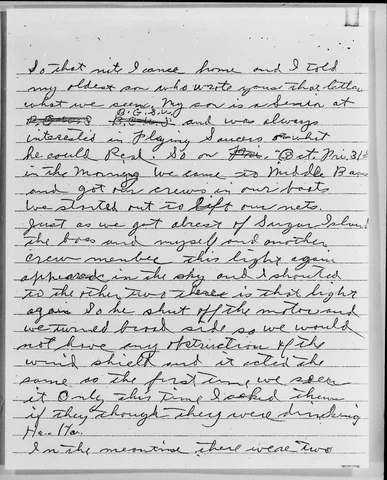 So that nite I came home and I told
my oldest son who wrote youse that letter
what we seen, My son is a Senior at
B.G.S.U.
and was always
interested in Flying Saucers or what
he could Read. So on Oct. Fri. 31st
in the Morning we came to Middle Bass
and got our crews in our boats
We started out to lift our nets.
Just as we got abrest of Sugar Island
the boss and myself and another
crew member this light again
appeared in the sky and I shouted
to the other two there is that light
again So he shut off the motor and
we turned broad side so we would
not have any obstruction of the
wind shield and it acted the
same as the first time we seen
it Only this time I asked them
if they though they were drinking
Ha. Ha.
In the meantime there were two